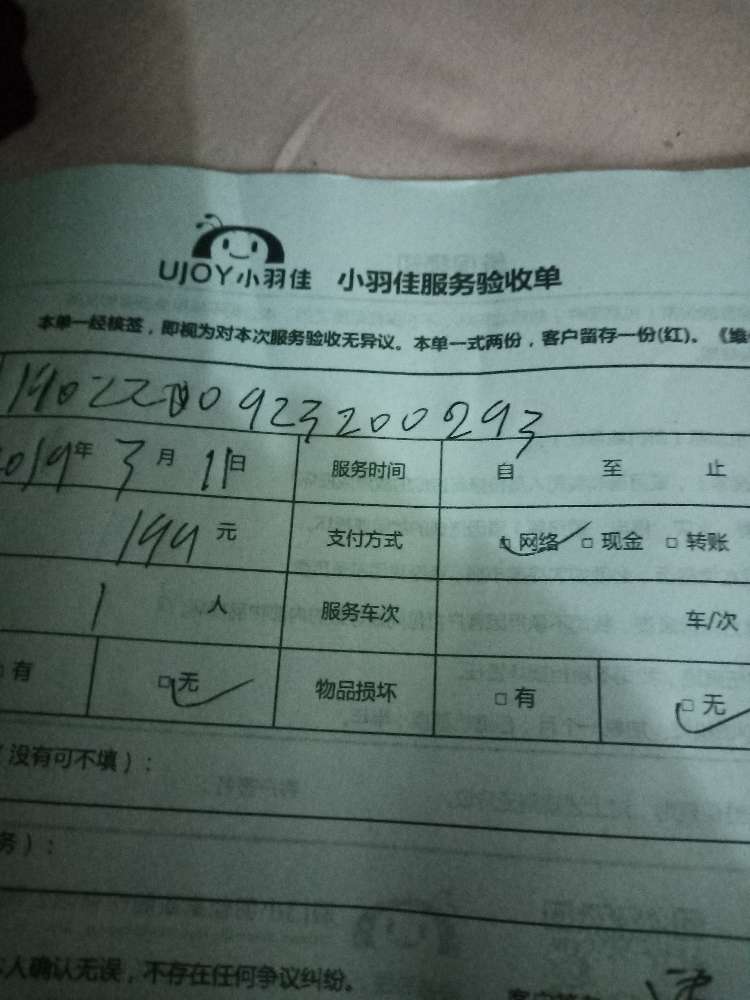 UJOY小羽佳 小羽佳服务验收单
本单一经核签，即视为对本次服务验收无异议。本单一式两份，客户留存一份(红)。《维
19022200923200293
2019年 3月 11日 服务时间 自 至 止
199元 支付方式 □网络 □现金 □转账
1人 服务车次 车/次
□有 □无 物品损坏 □有 □无
（没有可不填）：
务）：
本人确认无误，不存在任何争议纠纷。